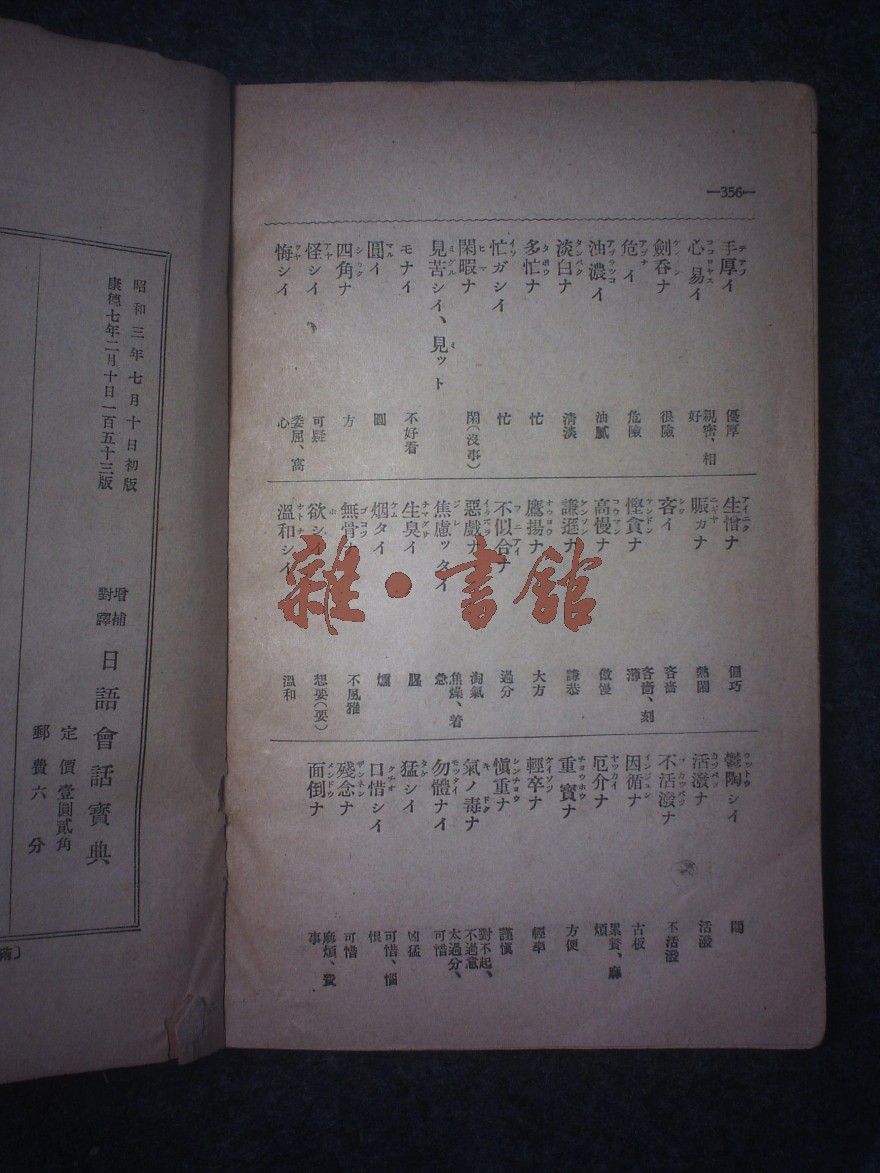 —356—
手厚イ 優厚
心易イ 親密、相好
劍呑ナ 很險
危イ 危險
油濃イ 油膩
淡白ナ 清淡
多忙ナ 忙
忙ガシイ 忙
閑暇ナ 閑(沒事)
見苦シイ、見ット
モナイ 不好看
圓イ 圓
四角ナ 方
怪シイ 可疑
悔シイ 委屈、窩心
生憎ナ 偏巧
賑カナ 熱鬧
吝イ 吝嗇
慳貪ナ 吝嗇、刻薄
高慢ナ 傲慢
謙遜ナ 謙恭
鷹揚ナ 大方
不似合ナ 過分
惡戲ナ 淘氣
焦慮ッタイ 焦燥、着急
生臭イ 腥
烟タイ 燻
無骨ナ 不風雅
欲シイ 想要(要)
溫和シイ 溫和
鬱陶シイ 悶
活潑ナ 活潑
不活潑ナ 不活潑
因循ナ 古板
厄介ナ 累贅、麻煩
重寶ナ 方便
輕卒ナ 輕率
愼重ナ 謹愼
氣ノ毒ナ 對不起、不過意
勿體ナイ 太過分、可惜
猛シイ 凶猛
口惜シイ 可惜、惱恨
殘念ナ 可惜
面倒ナ 麻煩、費事
雜·書館
昭和三年七月十日初版
康德七年二月十日一百五十三版
增補
對譯
日語會話寶典
定價壹圓貳角
郵費六分